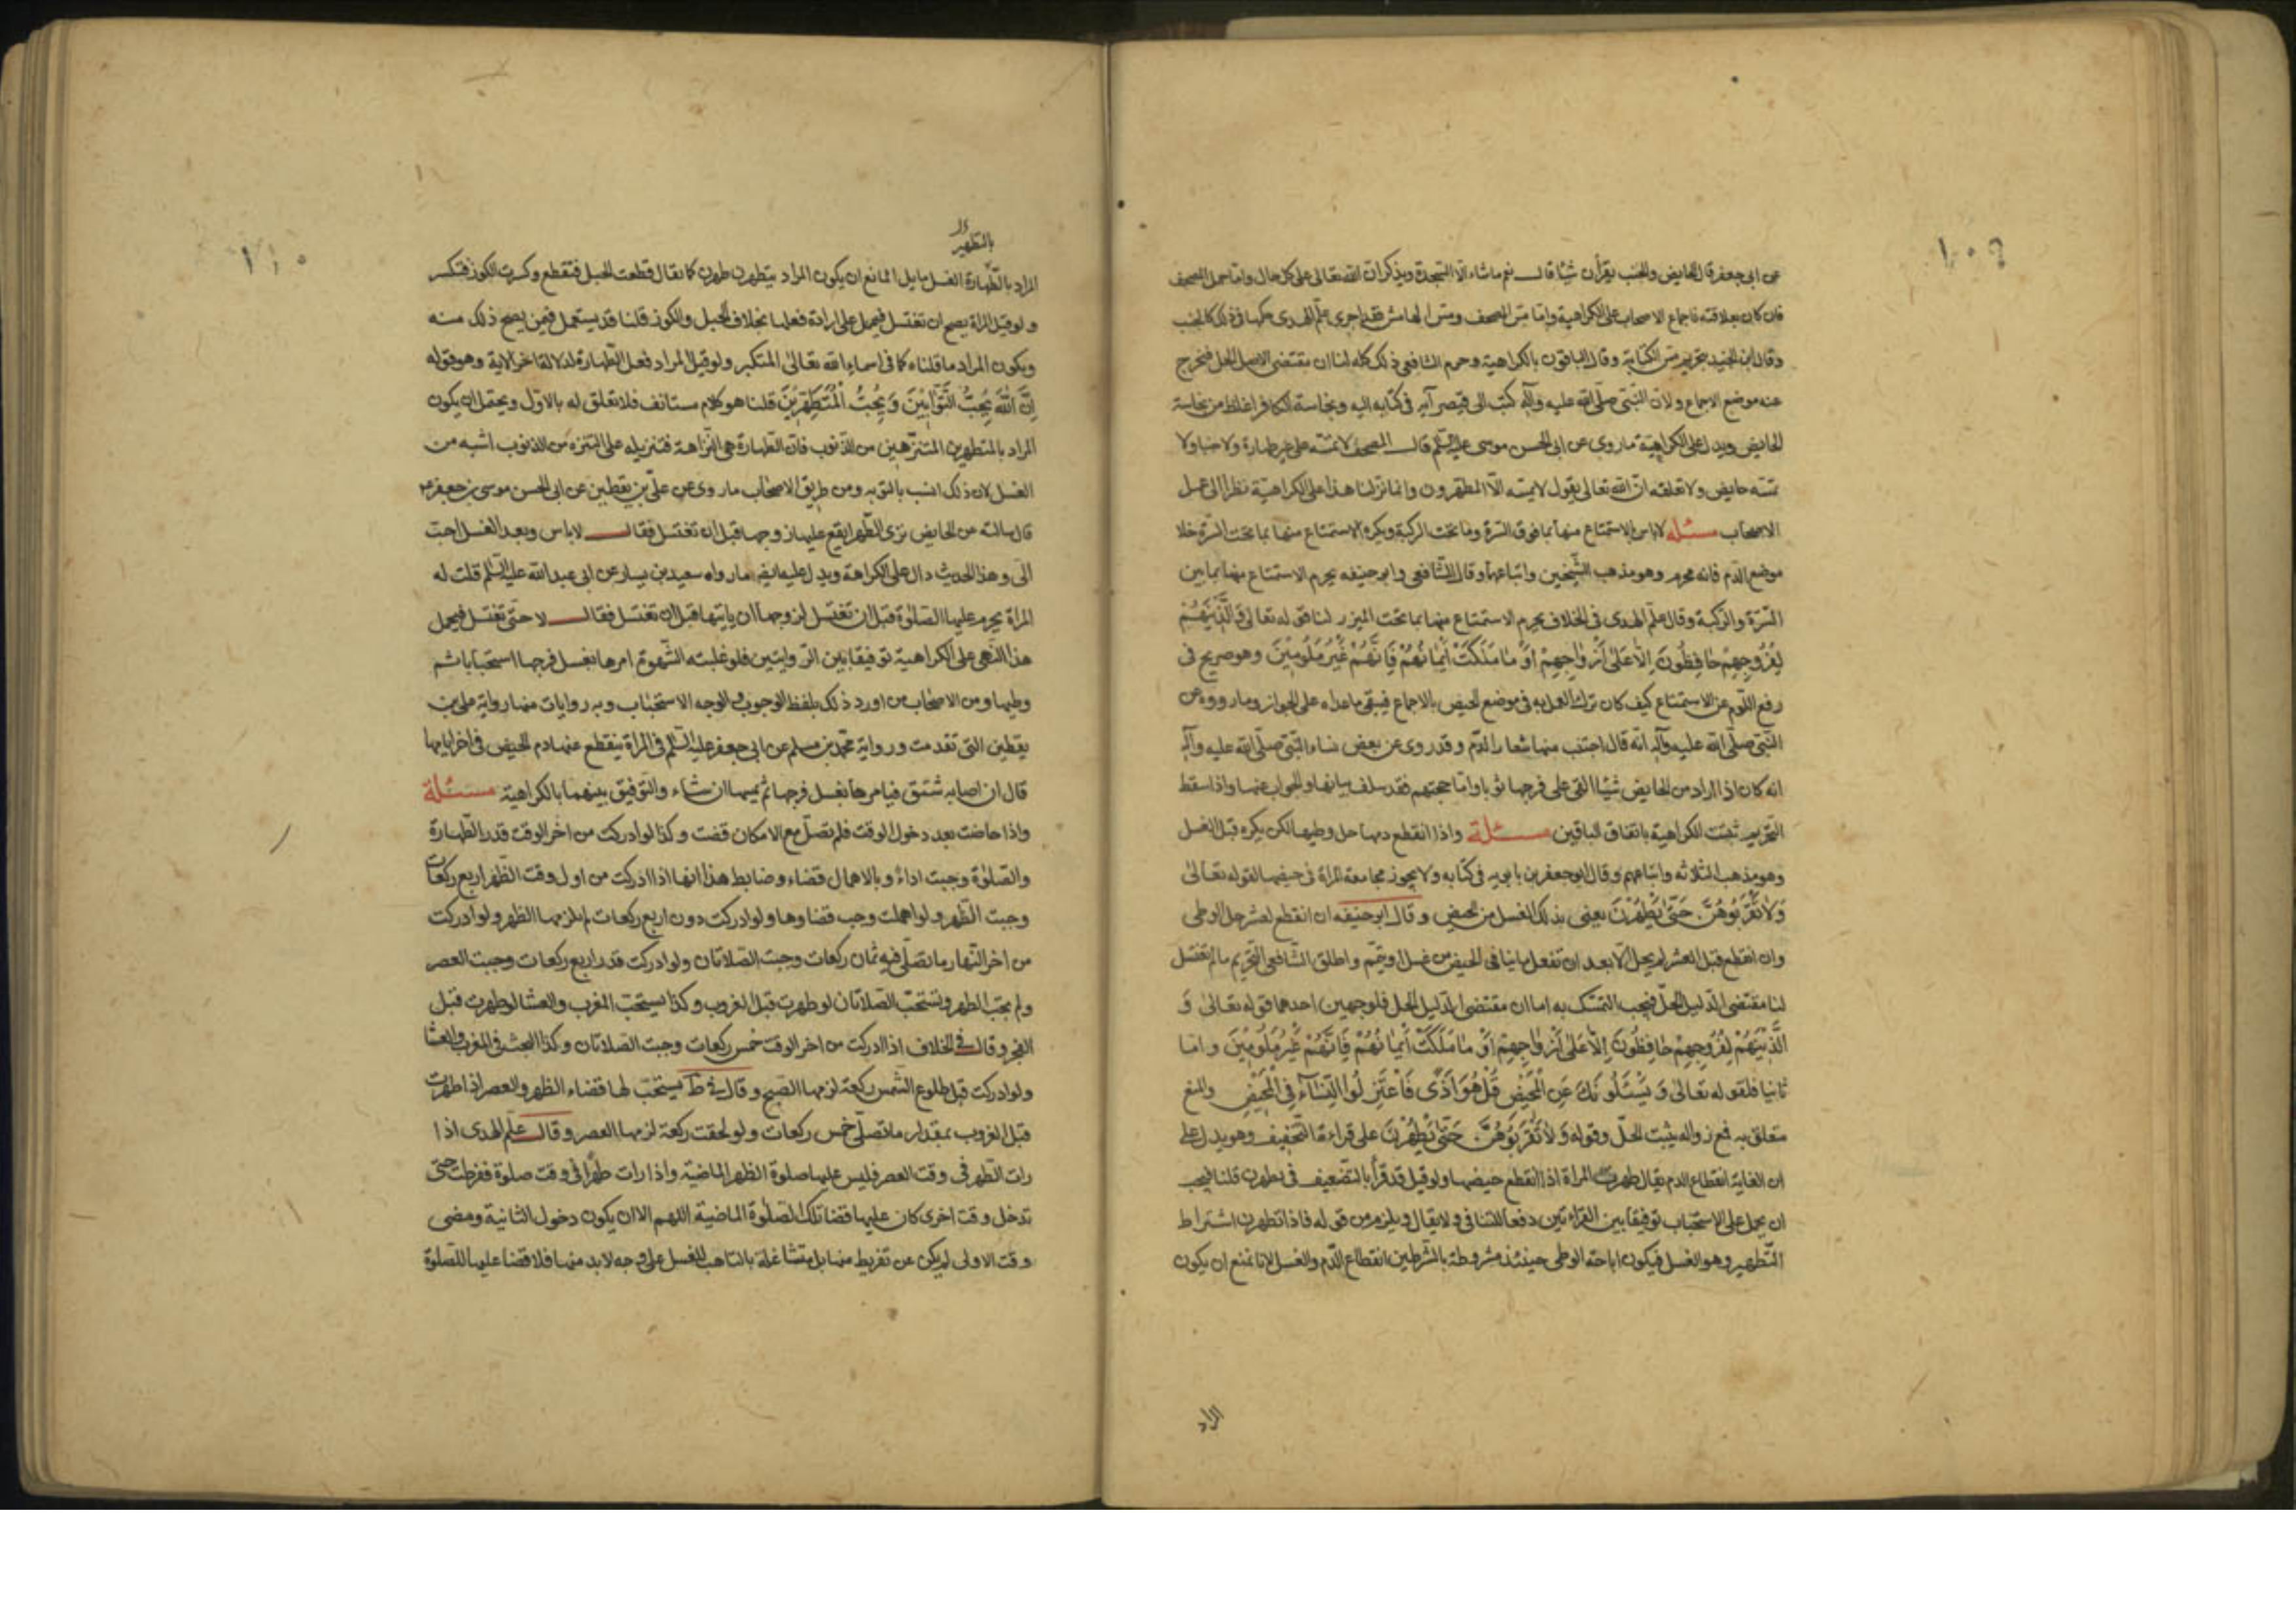 ١٠٩
عن ابى جعفر قال الحايض والجنب يقرأن شيئا قال نعم ماشاء الا السجدة ويذكران الله تعالى على كل حال واما حمل المصحف
فان كان بعلاقته فاجماع الاصحاب على الكراهية واما مس المصحف ومس الهامش فقد اجرى علم الهدى حكمها في ذلك كالجنب
وقال ابن الجنيد بتحريم مس الكتابة وقال الباقون بالكراهية وحرم الشافعي ذلك كله لنا ان مقتضى الاصل الحل فيخرج
عنه موضع الاجماع ولان النبى صلى الله عليه وآله كتب الى قيصر آية فى كتابه اليه ونجاسة الكافر اغلظ من نجاسة
الحايض ويدل على الكراهية ماروى عن ابى الحسن موسى عليه السلم قال المصحف لا تمسه على غير طهارة ولا جنبا ولا
تمسه حايض ولا تعلقه ان الله تعالى يقول لا يمسه الا المطهرون وانما نزلنا هذا على الكراهية نظرا الى عمل
الاصحاب مسئله لا باس بالاستمتاع منها بما فوق السرة وما تحت الركبة ويكره الاستمتاع منها بما تحت السرة خلا
موضع الدم فانه محرم وهو مذهب الشيخين واتباعهما وقال الشافعى وابو حنيفه يحرم الاستمتاع منها بما بين
السرة والركبة وقال علم الهدى فى الخلاف يحرم الاستمتاع منها بما تحت الميزر لنا قوله تعالى وَالَّذِينَ هُمْ
لِفُرُوجِهِمْ حَافِظُونَ اِلَّا عَلَى أَزْوَاجِهِمْ أَوْ مَا مَلَكَتْ أَيْمَانُهُمْ فَاِنَّهُمْ غَيْرُ مَلُومِينَ وهو صريح فى
رفع اللوم عن الاستمتاع كيف كان ترك العمل به فى موضع الحيض بالاجماع فيبقى ماعداه على الجواز وما رووه عن
النبى صلى الله عليه وآله انه قال اجتنب منها شعار الدم وقد روى عن بعض نساء النبى صلى الله عليه وآله
انه كان اذا اراد من الحايض شيئا القى على فرجها ثوبا واما حجتهم فقد سلف بيانها والجواب عنها واذا سقط
التحريم ثبتت الكراهية باتفاق الباقين مسئلة واذا انقطع دمها حل وطيها لكن يكره قبل الغسل
وهو مذهب الثلاثه واتباعهم وقال ابو جعفر بن بابويه فى كتابه ولا يجوز مجامعة المراة فى حيضها لقوله تعالى
وَلَا تَقْرَبُوهُنَّ حَتَّى يَطْهُرْنَ يعنى بذلك الغسل من الحيض وقال ابو حنيفه ان انقطع لعشر حل الوطى
وان انقطع قبل العشر لم يحل الا بعد ان تفعل ما ينافى الحيض من غسل او تيمم واطلق الشافعى التحريم مالم تغتسل
لنا مقتضى الدليل الحل فيجب التمسك به اما ان مقتضى الدليل الحل فلوجهين احدهما قوله تعالى وَ
الَّذِينَ هُمْ لِفُرُوجِهِمْ حَافِظُونَ اِلَّا عَلَى أَزْوَاجِهِمْ أَوْ مَا مَلَكَتْ أَيْمَانُهُمْ فَاِنَّهُمْ غَيْرُ مَلُومِينَ واما
ثانيا فلقوله تعالى وَ يَسْئَلُونَكَ عَنِ الْمَحِيضِ قُلْ هُوَ أَذًى فَاعْتَزِلُوا النِّسَاءَ فِي الْمَحِيضِ والمنع
متعلق به فمع زواله يثبت الحل وقوله وَلَا تَقْرَبُوهُنَّ حَتَّى يَطْهُرْنَ على قراءة التخفيف وهو يدل على
ان الغاية انقطاع الدم يقال طهرت المراة اذا انقطع حيضها ولو قيل قد قرأ بالتضعيف فى يطهرن قلنا فيجب
ان يحمل على الاستحباب توفيقا بين القراءتين دفعا للتنافى ولا يقال ويلزم من قوله فاذا تطهرن اشتراط
التطهير وهو الغسل فيكون اباحة الوطى حينئذ مشروطة بالشرطين انقطاع الدم والغسل لانا نمنع ان يكون
المراد
١١٠
بالتطهير
المراد بالطهارة الغسل بل ما المانع ان يكون المراد بتطهرن طهرن كما يقال قطعت الحبل فتقطع وكسرت الكوز فتكسر
ولو قيل المراة يصح ان تغتسل فيحمل على ارادة فعلها بخلاف الحبل والكوز قلنا قد يستعمل فيمن يصح ذلك منه
ويكون المراد ما قلناه كما فى اسماء الله تعالى المتكبر ولو قيل المراد فعل الطهارة لدلالة اخر الاية وهو قوله
اِنَّ اللهَ يُحِبُّ التَّوَّابِينَ وَيُحِبُّ الْمُتَطَهِّرِينَ قلنا هو كلام مستانف فلا تعلق له بالاول ويحتمل ان يكون
المراد بالمتطهرين المتنزهين من الذنوب فان الطهارة هى النزاهة فتنزيله على التنزه من الذنوب اشبه من
الغسل لان ذلك انسب بالتوبه ومن طريق الاصحاب ماروى عن على بن يقطين عن ابى الحسن موسى بن جعفر ع
قال سالته عن الحايض ترى الطهر ايقع عليها زوجها قبل ان تغتسل فقال لا باس وبعد الغسل احب
الى وهذا الحديث دال على الكراهة ويدل عليه ايضا مارواه سعيد بن يسار عن ابى عبد الله عليه السلم قلت له
المراة يحرم عليها الصلوة قبل ان تغتسل لزوجها ان ياتيها قبل ان تغتسل فقال لا حتى تغتسل فيحمل
هذا النهى على الكراهية توفيقا بين الروايتين فلو غلبته الشهوة امرها بغسل فرجها استحبابا ثم
وطيها ومن الاصحاب من اورد ذلك بلفظ الوجوب والوجه الاستحباب وبه روايات منها رواية على بن
يقطين التى تقدمت ورواية محمد بن مسلم عن ابى جعفر عليه السلم فى المراة ينقطع عنها دم الحيض فى اخر ايامها
قال ان اصابه شبق فيامرها بغسل فرجها ثم يمسها ان شاء والتوفيق بينهما بالكراهية مسئلة
واذا حاضت بعد دخول الوقت فلم تصل مع الامكان قضت وكذا لو ادركت من اخر الوقت قدر الطهارة
والصلوة وجبت اداءً وبالاهمال قضاء وضابط هذا انها اذا ادركت من اول وقت الظهر اربع ركعات
وجبت الظهر ولو اهملت وجب قضاوها ولو ادركت دون اربع ركعات لم يلزمها الظهر ولو ادركت
من اخر النهار ما تصلى فيه ثمان ركعات وجبت الصلاتان ولو ادركت قدر اربع ركعات وجبت العصر
ولم يجب الظهر وتستحب الصلاتان لو طهرت قبل الغروب وكذا يستحب المغرب والعشا لو طهرت قبل
الفجر وقال فى الخلاف اذا ادركت من اخر الوقت خمس ركعات وجبت الصلاتان وكذا البحث فى المغرب والعشا
ولو ادركت قبل طلوع الشمس ركعة لزمها الصبح وقال فى ط يستحب لها قضاء الظهر والعصر اذا طهرت
قبل الغروب بمقدار ما تصلى خمس ركعات ولو لحقت ركعة لزمها العصر وقال علم الهدى اذا
رات الطهر فى وقت العصر فليس عليها صلوة الظهر الماضية واذا رات طهرا فى وقت صلوة ففرطت حتى
تدخل وقت اخرى كان عليها قضا تلك الصلوة الماضية اللهم الا ان يكون دخول الثانية ومضى
وقت الاولى لم يكن عن تفريط منها بل متشاغلة بالتاهب للغسل على وجه لابد منها فلا قضا عليها للصلوة